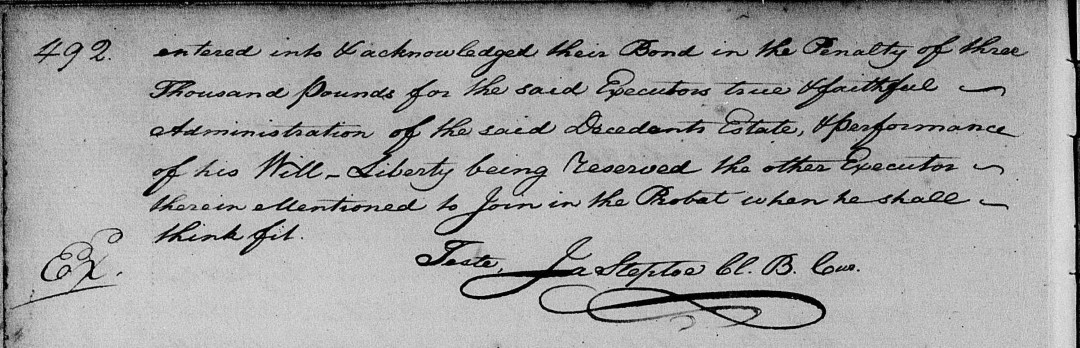 492. entered into & acknowledged their Bond in the Penalty of three
Thousand Pounds for the said Executors true & faithful
Administration of the said Decedents Estate, & performance
of his Will - Liberty being Reserved the other Executor
therein Mentioned to Join in the Probat when he shall
think fit.
Ex. Teste, Ja Steptoe Cl. B. Cur.